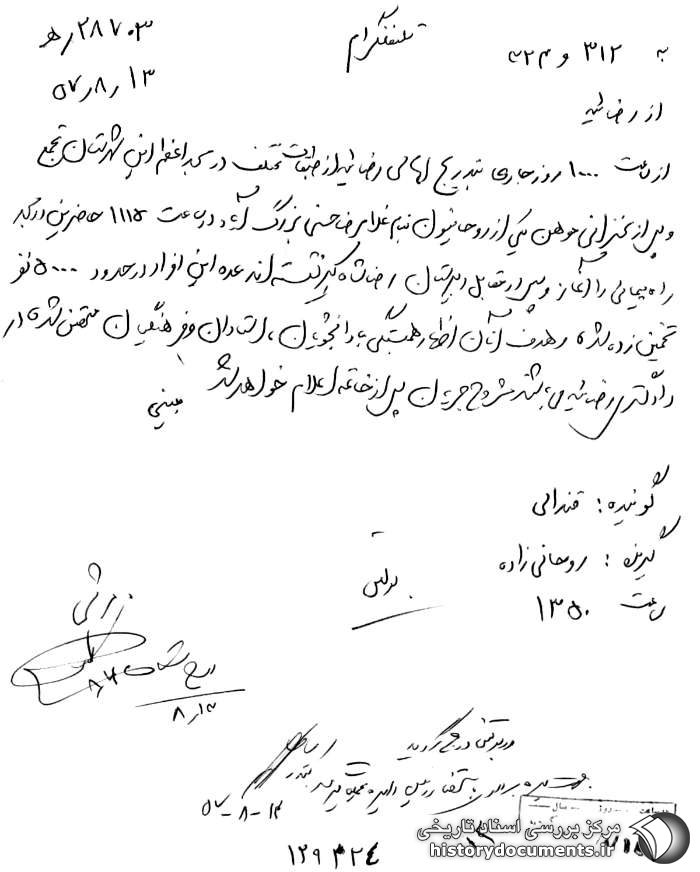 تلفنگرام
به ۳۱۲ و ۳۲۴
۲۸۷۰۳/ه
از رضائیه
۵۷/۸/۱۳
از ساعت ۱۰۰۰ روز جاری بتدریج اهالی رضائیه از طبقات مختلف در مسجد اعظم این شهرستان تجمع
و پس از سخنرانی موهن یکی از روحانیون بنام غلامرضا حسنی بزرگ آباد در ساعت ۱۱۱۵ حاضرین در مسجد
راه پیمائی را آغاز و پس در مقابل دبیرستان رضاشاه کبیر نشسته‌اند عده این افراد در حدود ۵۰۰۰ نفر
تخمین زده شده و هدف آنان اظهار همبستگی با دانشجویان، استادان و فرهنگیان متحصن شده در
دادگستری رضائیه می باشد مشروح جریان پس از خاتمه اعلام خواهد شد
گوینده : قندالی
گیرنده : روحانی زاده
ساعت ۱۳۵۰
۸/۱۳
در بولتن درج گردید
۵۷-۸-۱۴
۱۲۹۳۲۴
مرکز بررسی اسناد تاریخی
historydocuments.ir